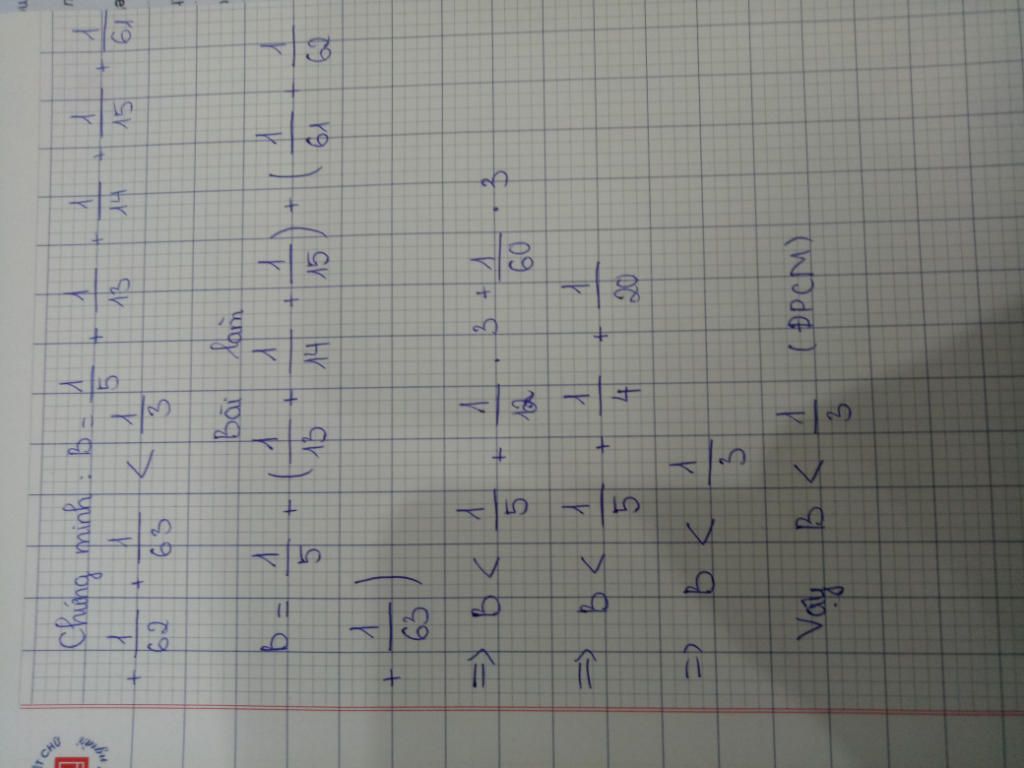 Chứng minh : B = 1/5 + 1/13 + 1/14 + 1/15 + 1/61
+ 1/62 + 1/63 < 1/3
Bài làm
B = 1/5 + (1/13 + 1/14 + 1/15) + (1/61 + 1/62
+ 1/63)
=> B < 1/5 + 1/12 . 3 + 1/60 . 3
=> B < 1/5 + 1/4 + 1/20
=> B < 1/3
Vậy B < 1/3 (ĐPCM)